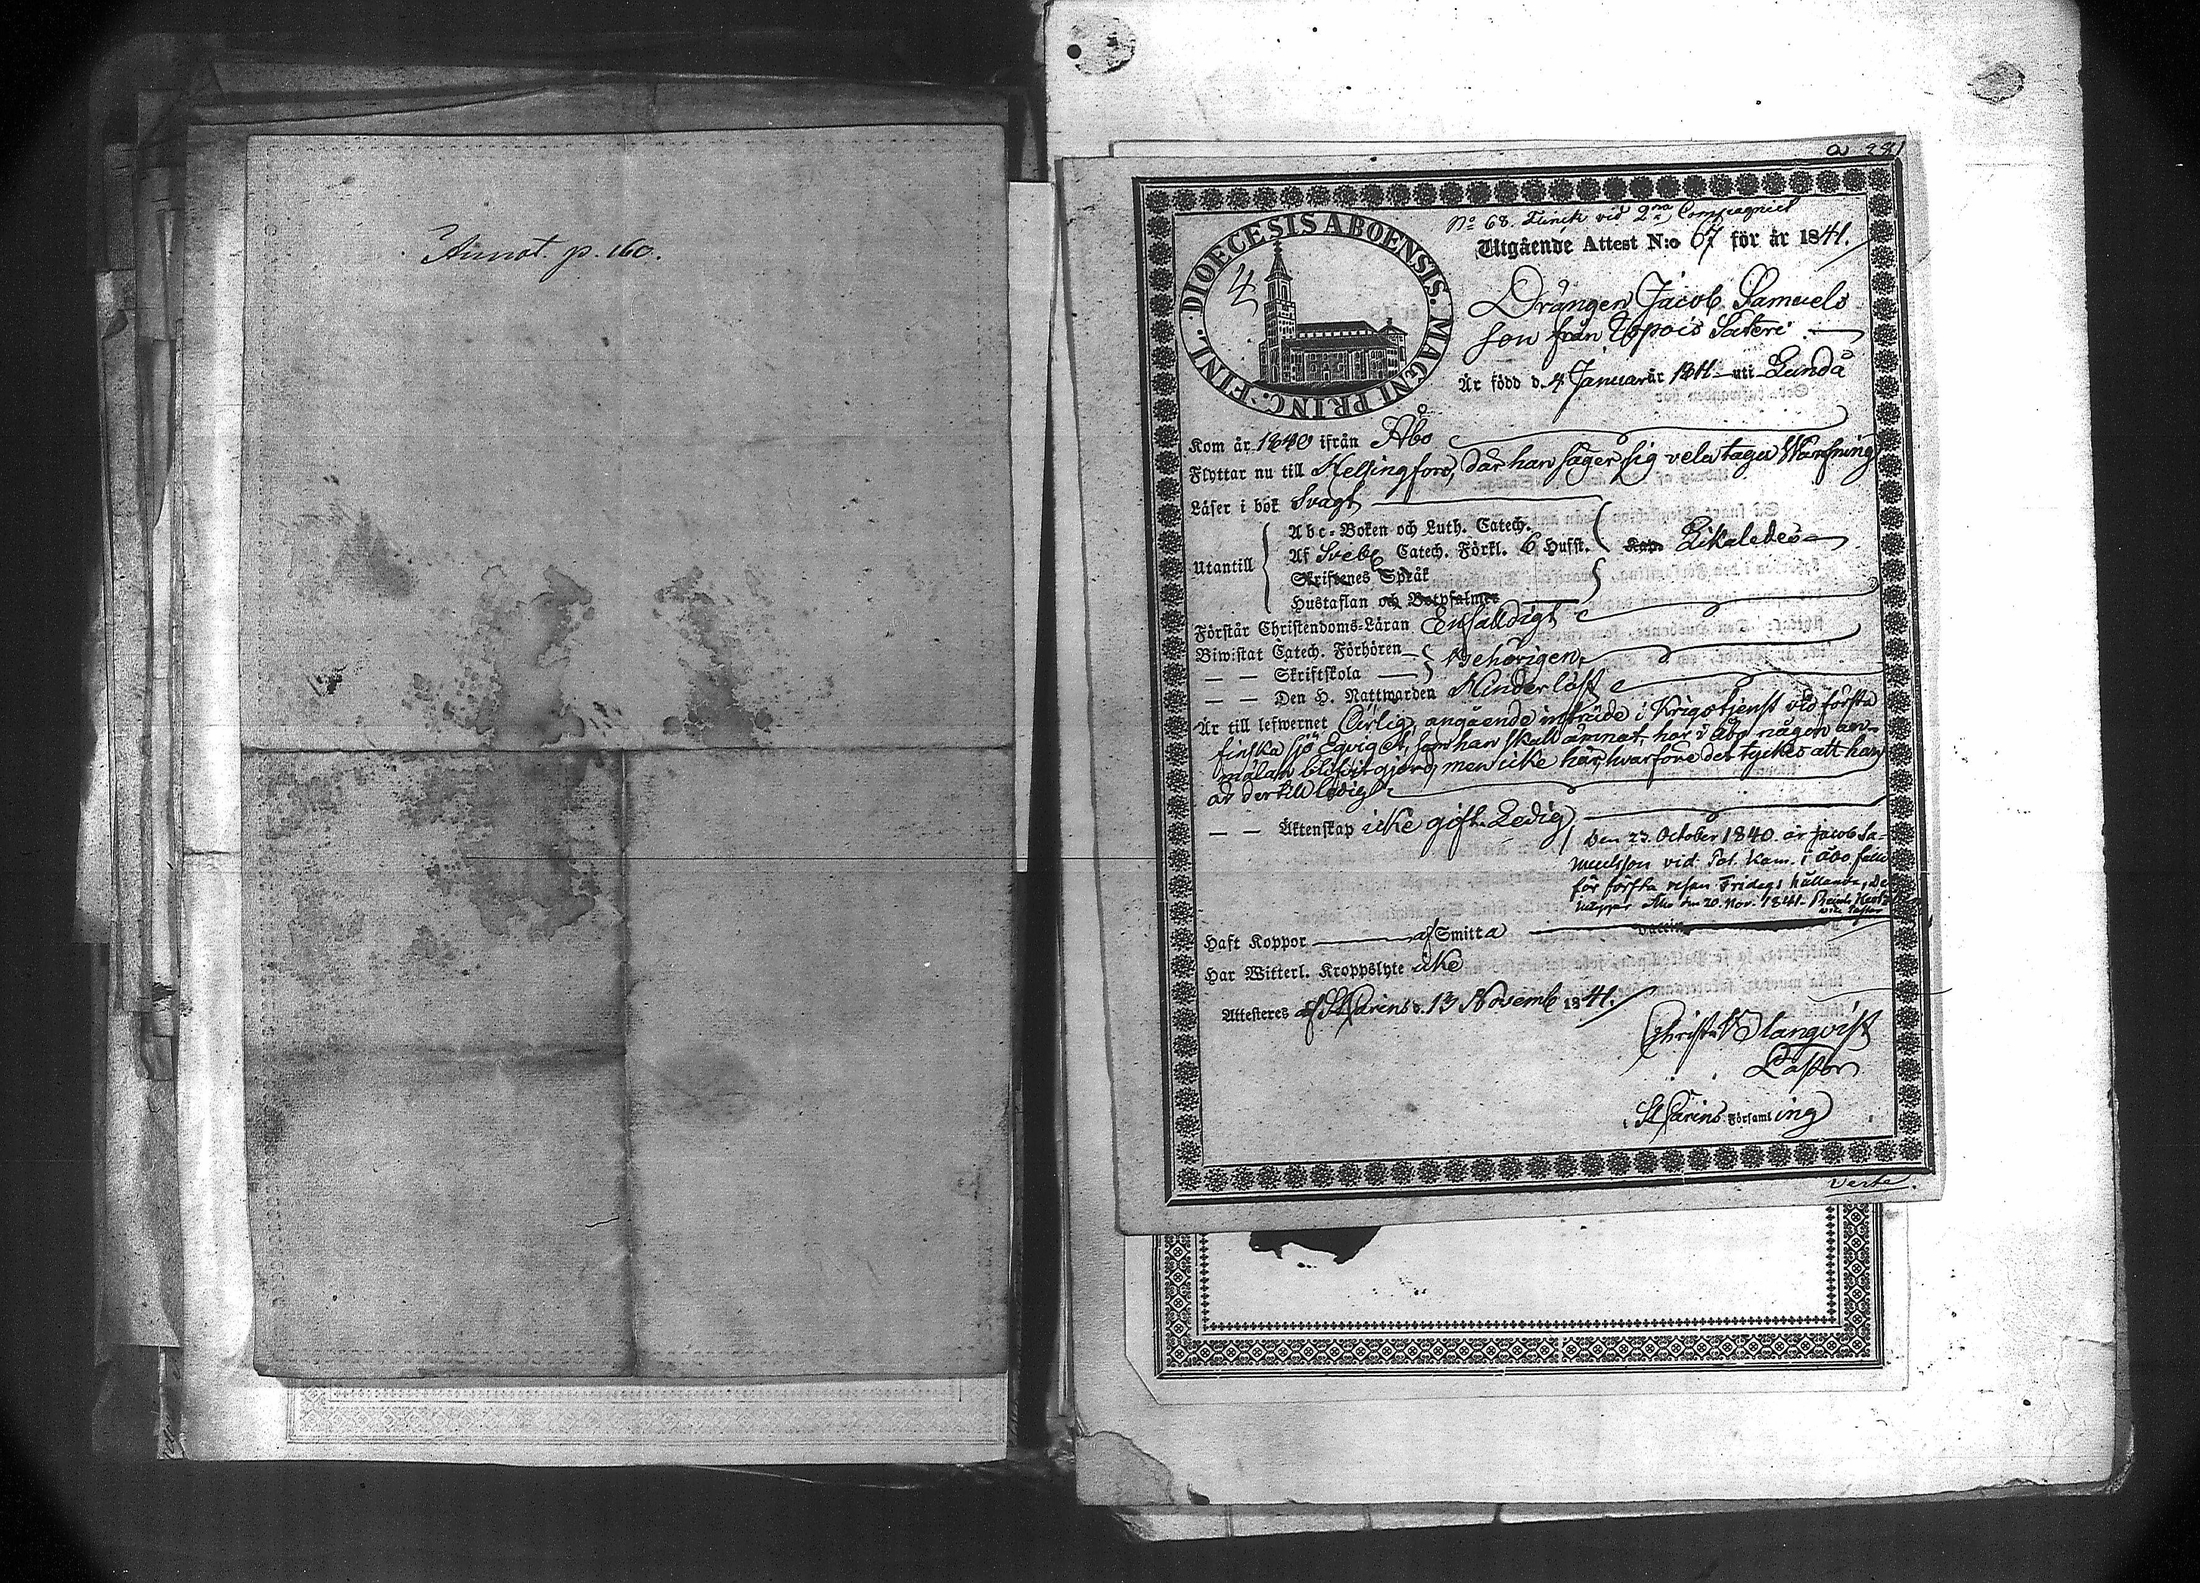 Annot. p. 160.
a 281
No 68. Flinck vid 2dra Compagniet
Utgående Attest N:o 67 för år 1841.
DIOECESIS ABOENSIS. MAGNI PRINC. FINL.
Drängen Jacob Samuels
son från Uspois Säteri
Är född d. 4 Januar år 1811 uti Lundå
Kom år 1840 ifrån Åbo
Flyttar nu till Helsingfors, där han säger sig vela taga Warfning
Läser i bok Svagt
Abc-Boken och Luth. Catech.
Utantill Af Sveb Catech. Förkl. 6 Hufst. Likaledes
Skriftenes Språk
Hustaflan och Botpsalmer
Förstår Christendoms-Läran Enfaldigt
Biwistat Catech. Förhören Behörigen
— — Skriftskola
— — Den H. Nattwarden Hinderlöst
Är till lefwernet Ärlig, angående inträde i Krigstjenst vid första
finska Sjö Equipaget, som han skall ämnat, har i Åbo någon an-
mälan blifvit gjord, men icke här, hvarföre det tyckes att han
är dertill ledig
— — Äktenskap icke gift. Ledig
Den 23 October 1840 är Jacob Sa-
muelsson vid Pol. Kam. i Åbo fälld
för första resan Fridags hållande, be
intygar Åbo den 20 Nov. 1841.
vice Pastor
Haft Koppor af Smitta
Har Witterl. Kroppslyte icke
Attesteres af St Carins d. 13 Novemb 1841.
Christ Slangvist
Pastor
i St Carins Församling
Verte.